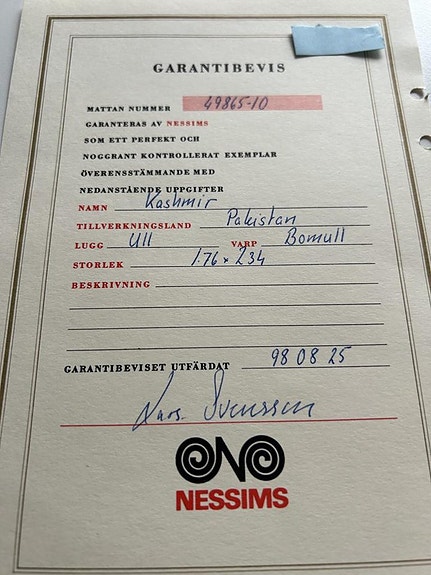 GARANTIBEVIS
MATTAN NUMMER 49865-10
GARANTERAS AV NESSIMS
SOM ETT PERFEKT OCH
NOGGRANT KONTROLLERAT EXEMPLAR
ÖVERENSSTÄMMANDE MED
NEDANSTÅENDE UPPGIFTER
NAMN Kashmir
TILLVERKNINGSLAND Pakistan
LUGG Ull VARP Bomull
STORLEK 1.76 x 234
BESKRIVNING
GARANTIBEVISET UTFÄRDAT 98 08 25
Svensson
NESSIMS